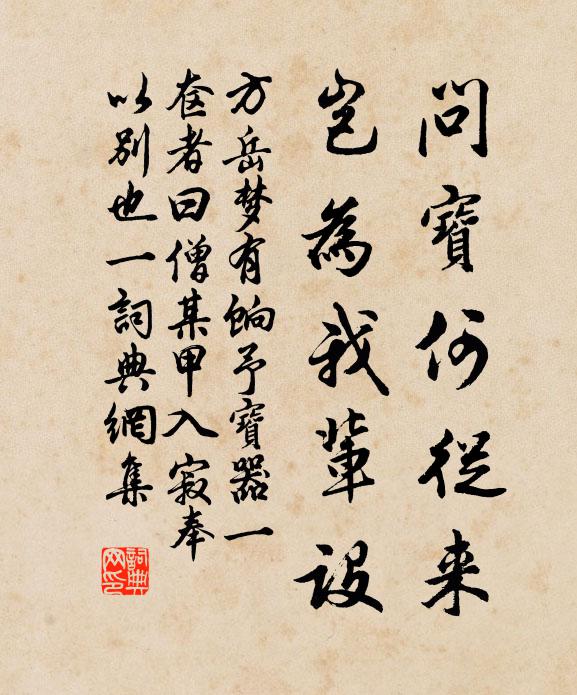 問寶何從来
豈為我輩設
方岳梦有餉予寶器一
奩者曰僧某甲入寂奉
以别也一詞典網集
詞典网印